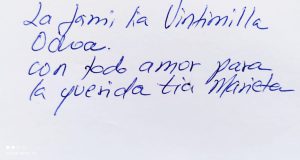 La familia Vintimilla
Ochoa.
con todo amor para
la querida tia Marieta